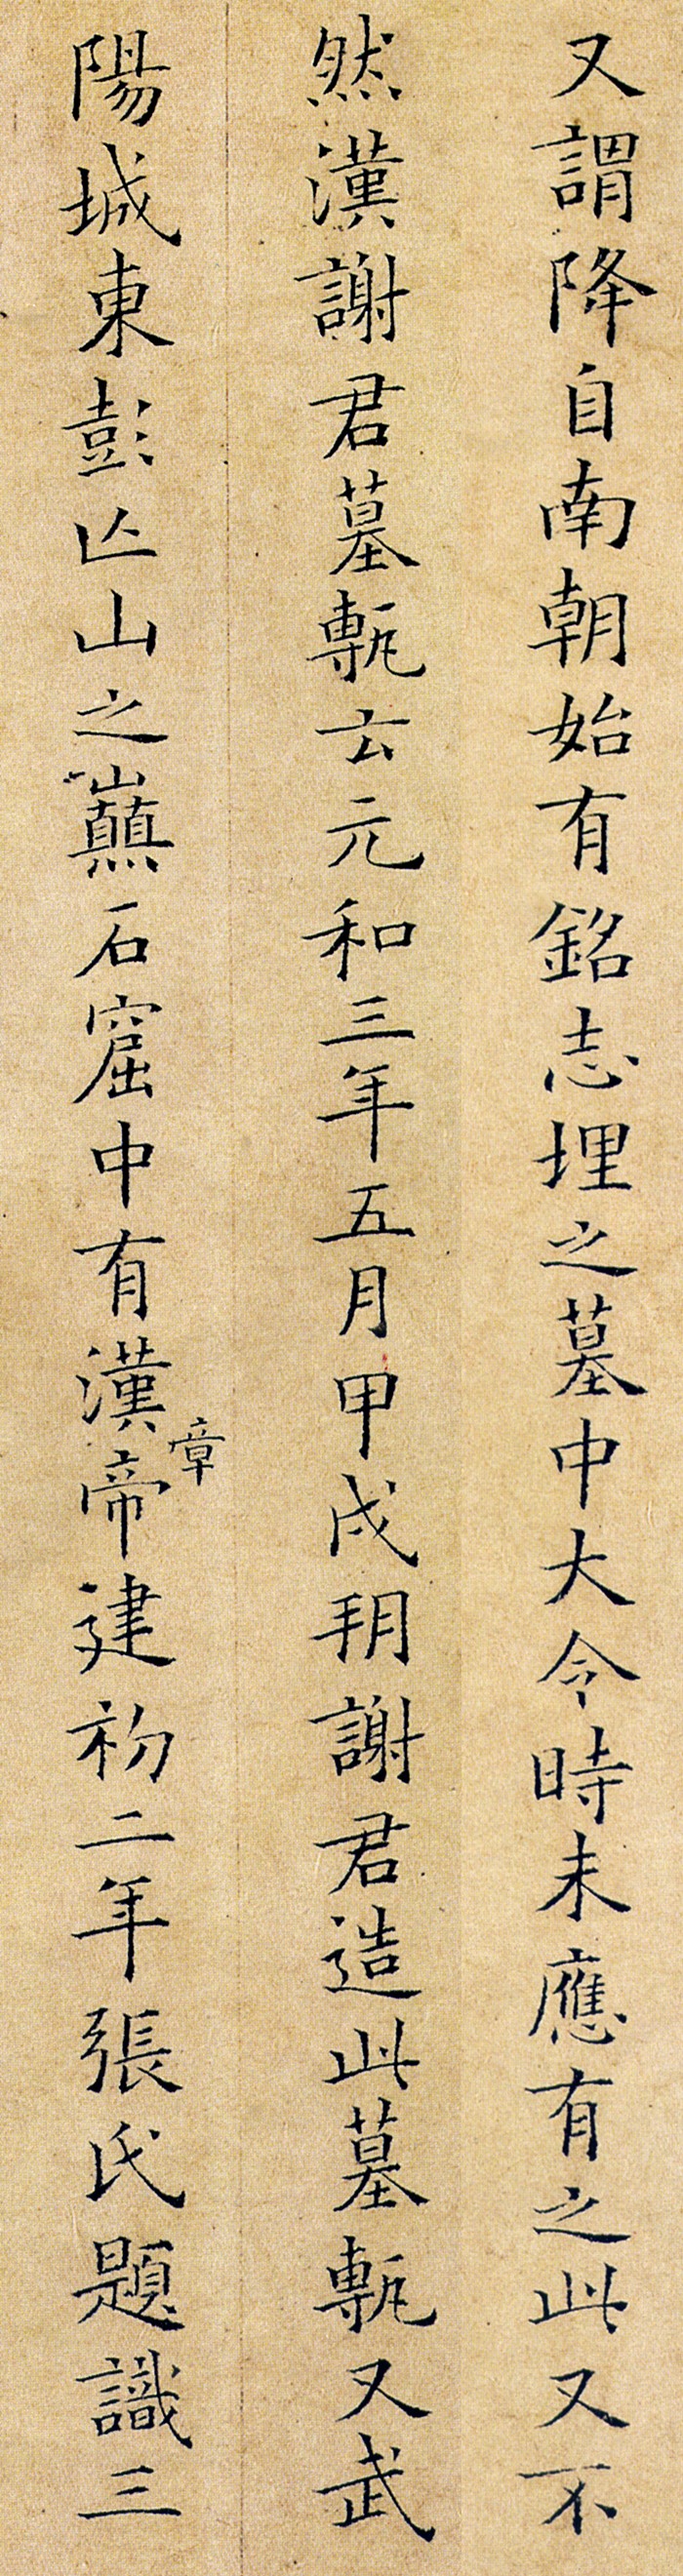 又謂降自南朝始有銘志埋之墓中大令時未應有之此又不
然漢謝君墓甎云元和三年五月甲戌朔謝君造此墓甎又武
陽城東彭亾山之巔石窟中有漢章帝建初二年張氏題識三